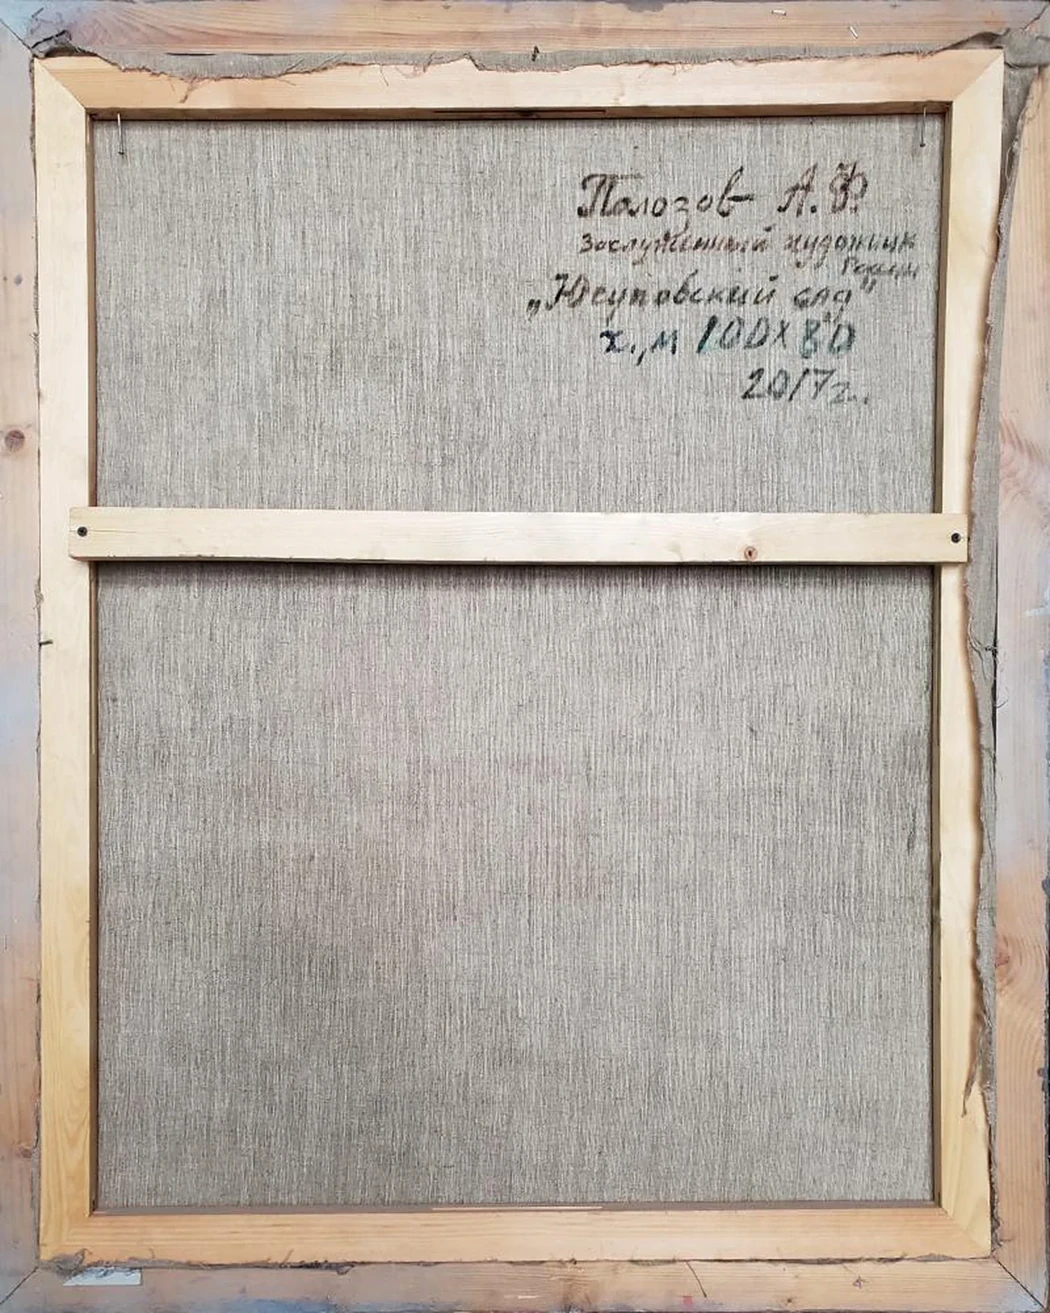 Полозов А.Ф.
Заслуженный художник
России
„Юсуповский сад"
х.,м 100х80
2017г.